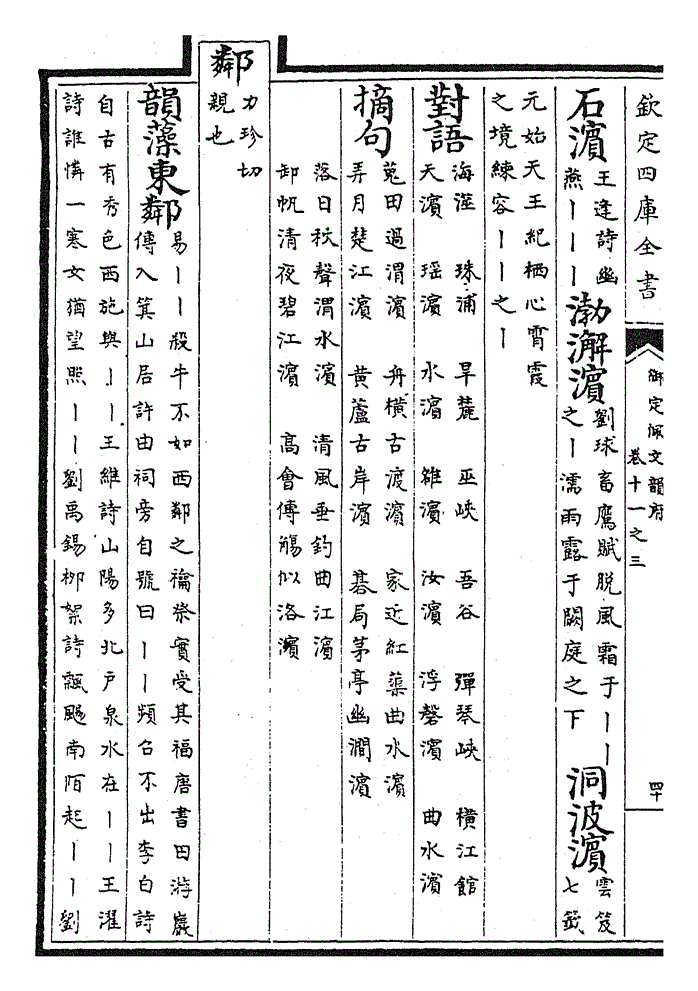 欽定四庫全書
御定佩文韻府
卷十一之三
四十
石濱
王逢詩幽
燕丨丨丨
渤澥濱
劉球畜鷹賦脱風霜于丨丨
之丨濡雨露于闕庭之下
洞波濱
雲笈
七籤
元始天王紀栖心霄霞
之境練容丨丨之丨
對語
海澨 珠浦 旱麓 巫峽 吾谷 彈琴峽 横江館
天濱 瑶濱 水濱 雒濱 汝濱 浮磬濱 曲水濱
摘句
菟田過渭濱 舟横古渡濱 家近紅蕖曲水濱
弄月楚江濱 黄蘆古岸濱 碁局茅亭幽澗濱
落日秋聲渭水濱 清風垂釣曲江濱
卸帆清夜碧江濱 高會傳觴似洛濱
鄰
力珍切
親也
韻藻東鄰
易丨丨殺牛不如西鄰之禴祭實受其福唐書田游巖
傳入箕山居許由祠旁自號曰丨丨頻召不出李白詩
自古有秀色西施與丨丨王維詩山陽多北户泉水在丨丨王濯
詩誰憐一寒女猶望照丨丨劉禹錫柳絮詩飄颺南陌起丨丨劉